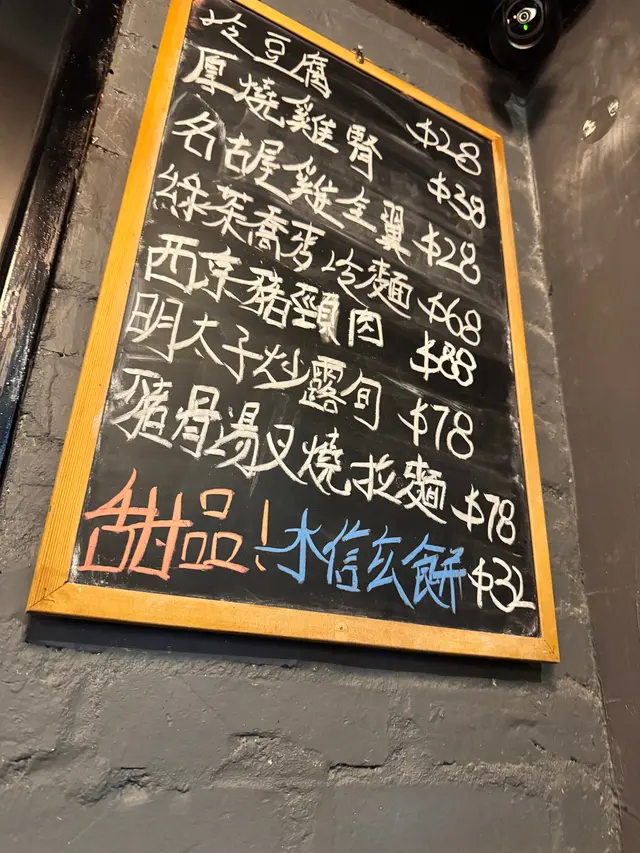 冷豆腐 $28
厚燒雞腎 $38
名古屋雞全翼 $28
綠茶喬麥冷麵 $68
西京豬頸肉 $88
明太子炒露旬 $78
豬骨湯叉燒拉麵 $78
甜品！水信玄餅 $32